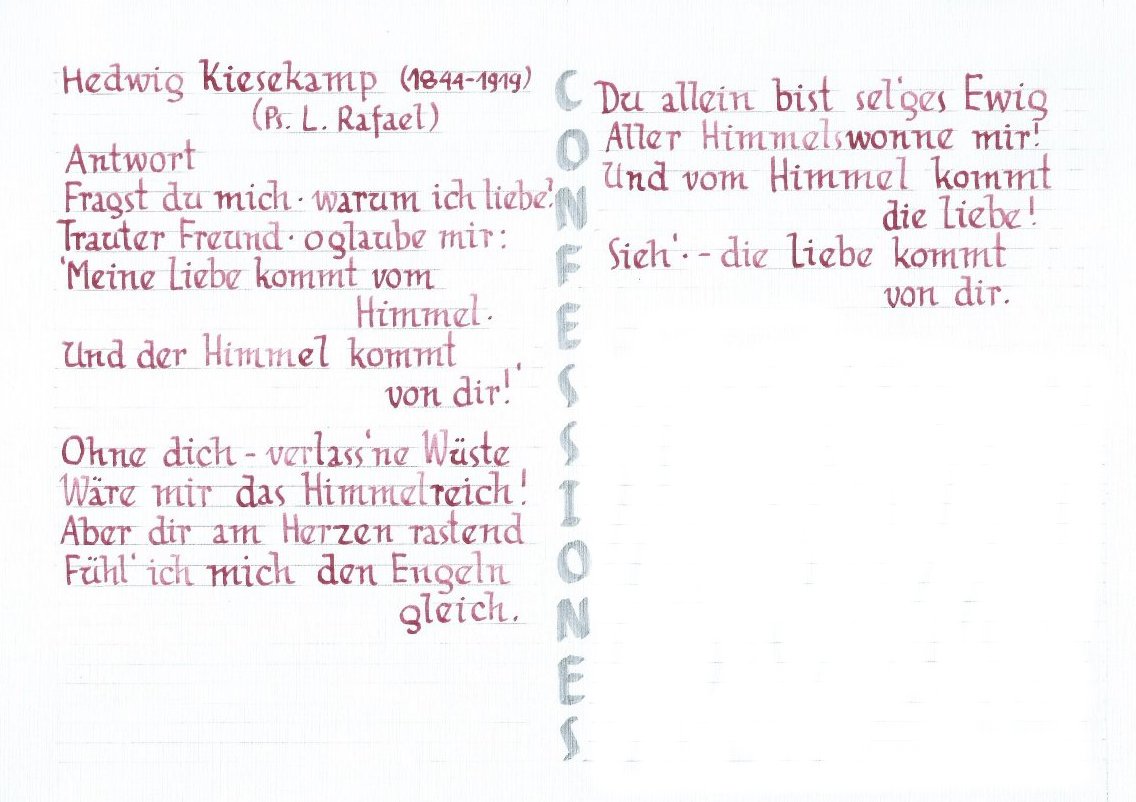 Hedwig Kiesekamp (1844-1919)
(Ps. L. Rafael)
Antwort
Fragst du mich · warum ich liebe?
Trauter Freund · o glaube mir:
'Meine Liebe kommt vom
Himmel.
Und der Himmel kommt
von dir!'
Ohne dich - verlass'ne Wüste
Wäre mir das Himmelreich!
Aber dir am Herzen rastend
Fühl' ich mich den Engeln
gleich.
CONFESSIONES
Du allein bist sel'ges Ewig
Aller Himmelswonne mir!
Und vom Himmel kommt
die Liebe!
Sieh' · - die Liebe kommt
von dir.